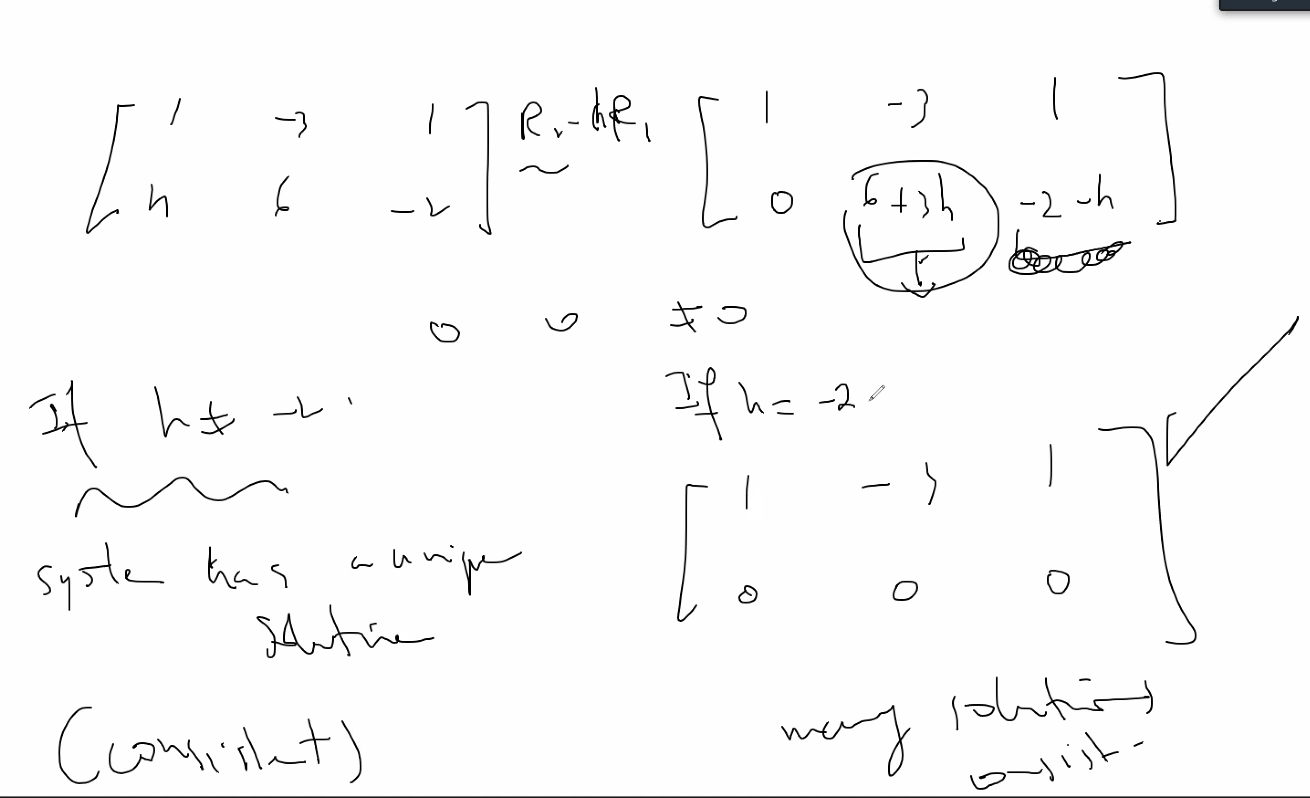 [ 1 -3 1 ] R₂-hR₁ [ 1 -3 1 ]
[ h 6 -2 ] ~ [ 0 6+3h -2-h ]
0 0 ≠0
If h ≠ -2
system has a unique
solution
(consistent)
If h = -2
[ 1 -3 1 ]
[ 0 0 0 ]
many solutions
consist.